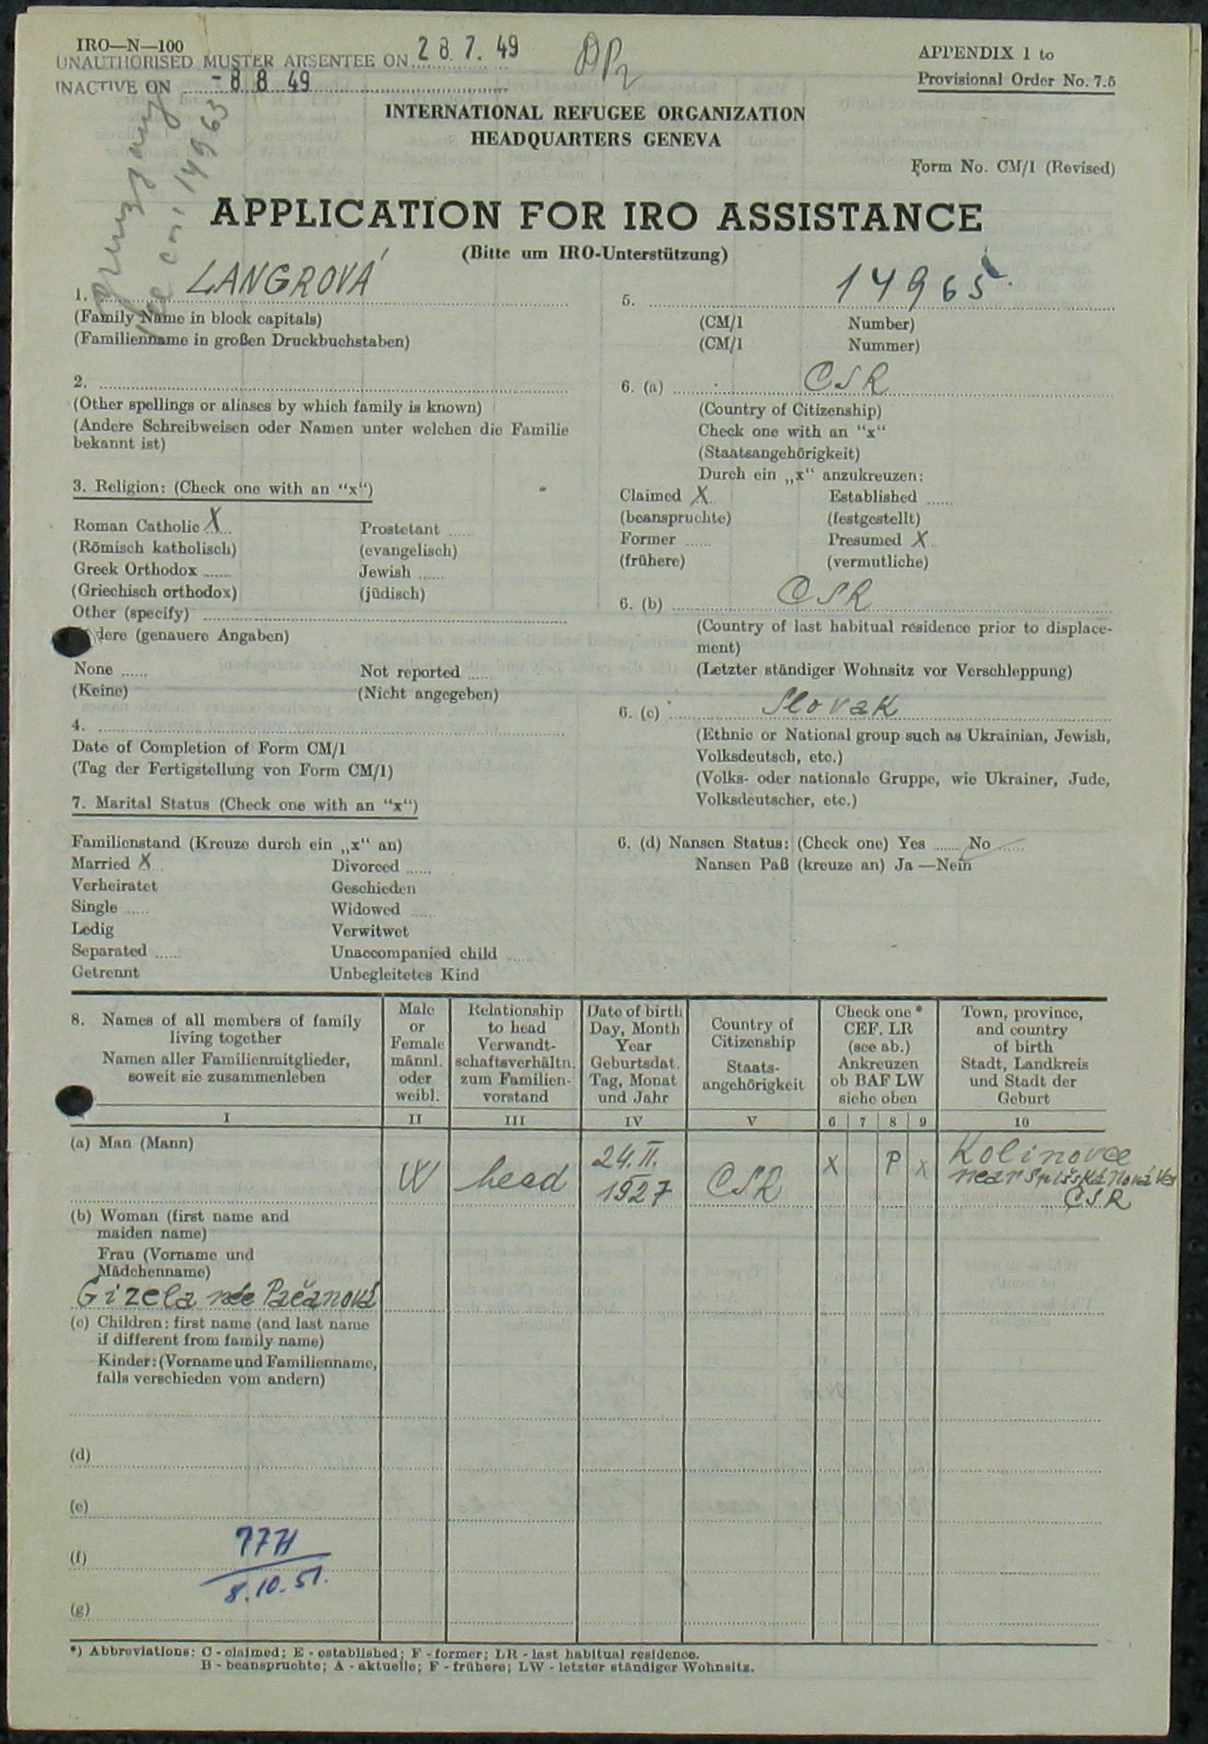 IRO—N—100
UNAUTHORISED MUSTER ABSENTEE ON 28. 7. 49
INACTIVE ON - 8 8 49
APPENDIX 1 to
Provisional Order No. 7.5
INTERNATIONAL REFUGEE ORGANIZATION
HEADQUARTERS GENEVA
Form No. CM/1 (Revised)
14963
APPLICATION FOR IRO ASSISTANCE
(Bitte um IRO-Unterstützung)
1. LANGROVÁ
(Family Name in block capitals)
(Familienname in großen Druckbuchstaben)
2.
(Other spellings or aliases by which family is known)
(Andere Schreibweisen oder Namen unter welchen die Familie
bekannt ist)
3. Religion: (Check one with an “x“)
Roman Catholic X Prostetant
(Römisch katholisch) (evangelisch)
Greek Orthodox Jewish
(Griechisch orthodox) (jüdisch)
Other (specify)
dere (genauere Angaben)
None Not reported
(Keine) (Nicht angegeben)
4.
Date of Completion of Form CM/1
(Tag der Fertigstellung von Form CM/1)
7. Marital Status (Check one with an “x“)
Familienstand (Kreuze durch ein „x“ an)
Married X Divorced
Verheiratet Geschieden
Single Widowed
Ledig Verwitwet
Separated Unaccompanied child
Getrennt Unbegleitetes Kind
5. 14965
(CM/1 Number)
(CM/1 Nummer)
6. (a) CSR
(Country of Citizenship)
Check one with an “x“
(Staatsangehörigkeit)
Durch ein „x“ anzukreuzen:
Claimed X Established
(beanspruchte) (festgestellt)
Former Presumed X
(frühere) (vermutliche)
6. (b) CSR
(Country of last habitual residence prior to displace-
ment)
(Letzter ständiger Wohnsitz vor Verschleppung)
6. (c) Slovak
(Ethnic or National group such as Ukrainian, Jewish,
Volksdeutsch, etc.)
(Volks- oder nationale Gruppe, wie Ukrainer, Jude,
Volksdeutscher, etc.)
6. (d) Nansen Status: (Check one) Yes No
Nansen Paß (kreuze an) Ja —Nein
8. Names of all members of family
living together
Namen aller Familienmitglieder,
soweit sie zusammenleben
I
Male
or
Female
männl.
oder
weibl.
II
Relationship
to head
Verwandt-
schaftsverhältn.
zum Familien-
vorstand
III
Date of birth
Day, Month
Year
Geburtsdat.
Tag, Monat
und Jahr
IV
Country of
Citizenship
Staats-
angehörigkeit
V
Check one *
CEF. LR
(see ab.)
Ankreuzen
ob BAF LW
siehe oben
6 7 8 9
Town, province,
and country
of birth
Stadt, Landkreis
und Stadt der
Geburt
10
(a) Man (Mann)
W head 24. II. 1927 CSR X P X Kolinovce
near Spišská Nová Ves
CSR
(b) Woman (first name and
maiden name)
Frau (Vorname und
Mädchenname)
Gizela née Pačanová
(c) Children: first name (and last name
if different from family name)
Kinder: (Vorname und Familienname,
falls verschieden vom andern)
(d)
(e)
(f)
8.10.51.
(g)
*) Abbreviations: C - claimed; E - established; F - former; LR - last habitual residence.
B - beanspruchte; A - aktuelle; F - frühere; LW - letzter ständiger Wohnsitz.